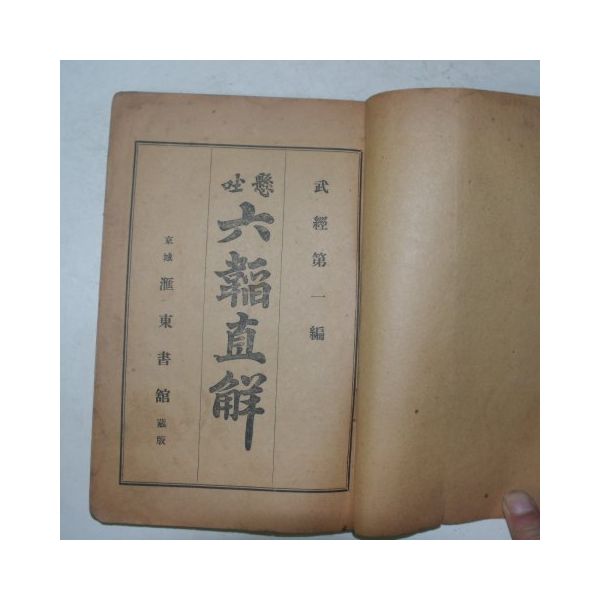 武經第一編
懸吐
六韜直解
京城 滙東書舘 蔵版